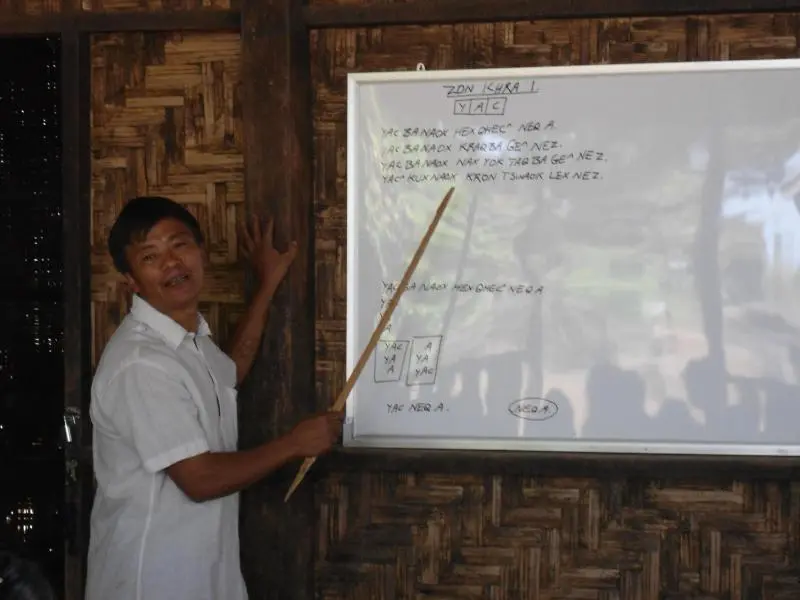 ZON KHRA 1.
YAC
YAC BA NAOX HEX QHEC^ NEQ A.
YAC BA NAOX KRAQ BA GE^ NEZ.
YAC BA NAOX NAX YOK TAQ BA GE^ NEZ.
YAC^ KUX NAOX KRON TSHAOK LEX NEZ.
YAC BA NAOX HEX QHEC NEQ A
YA
A
YAC A
YA YA
A YAC
YAC NEQ A. NEQ A.